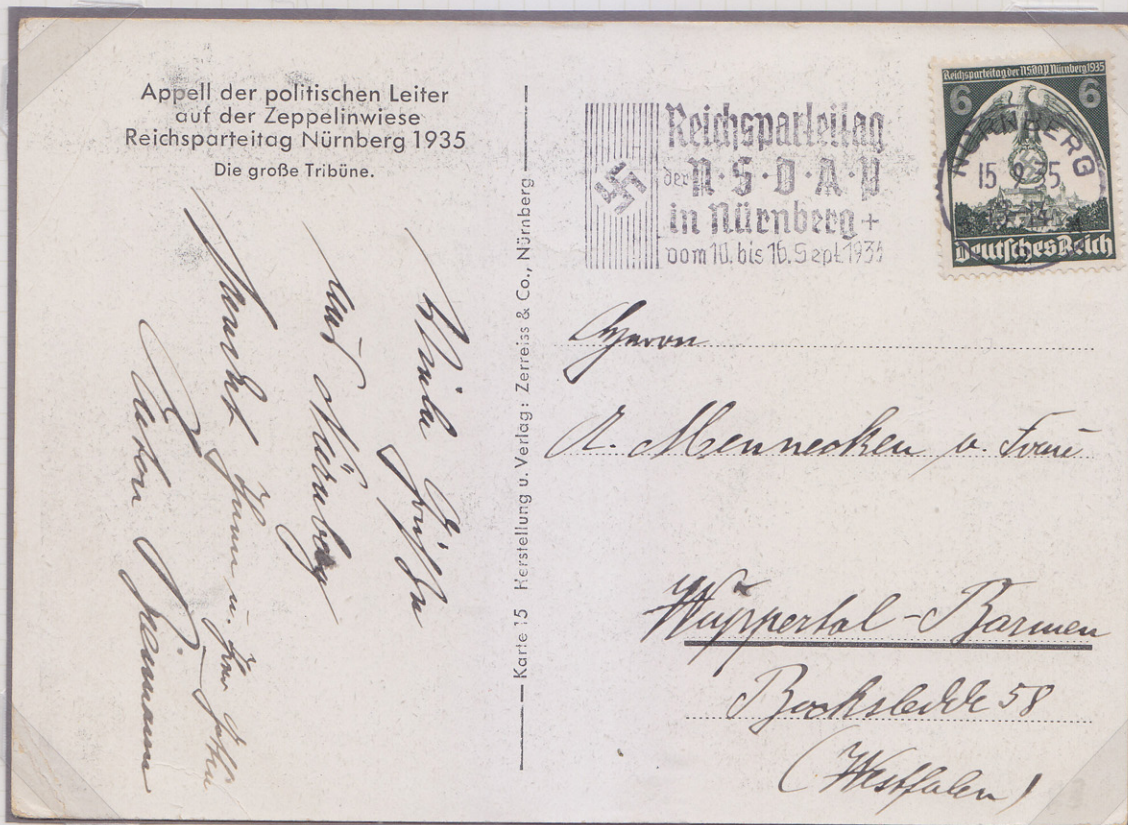 Appell der politischen Leiter
auf der Zeppelinwiese
Reichsparteitag Nürnberg 1935
Die große Tribüne.
Viele Grüße
aus Nürnberg
sendet Ihnen u. Frau
Reimann
Karte 15 Herstellung u. Verlag: Zerreiss & Co., Nürnberg
Reichsparteitag
der N·S·D·A·P
in Nürnberg +
vom 10. bis 16. Sept. 1935
Reichsparteitag der NSDAP Nürnberg 1935
6 6
NÜRNBERG
15.9.35
Deutsches Reich
Herrn
A. Mennecken u. Frau
Wuppertal-Barmen
Bocksledde 58
(Westfalen)